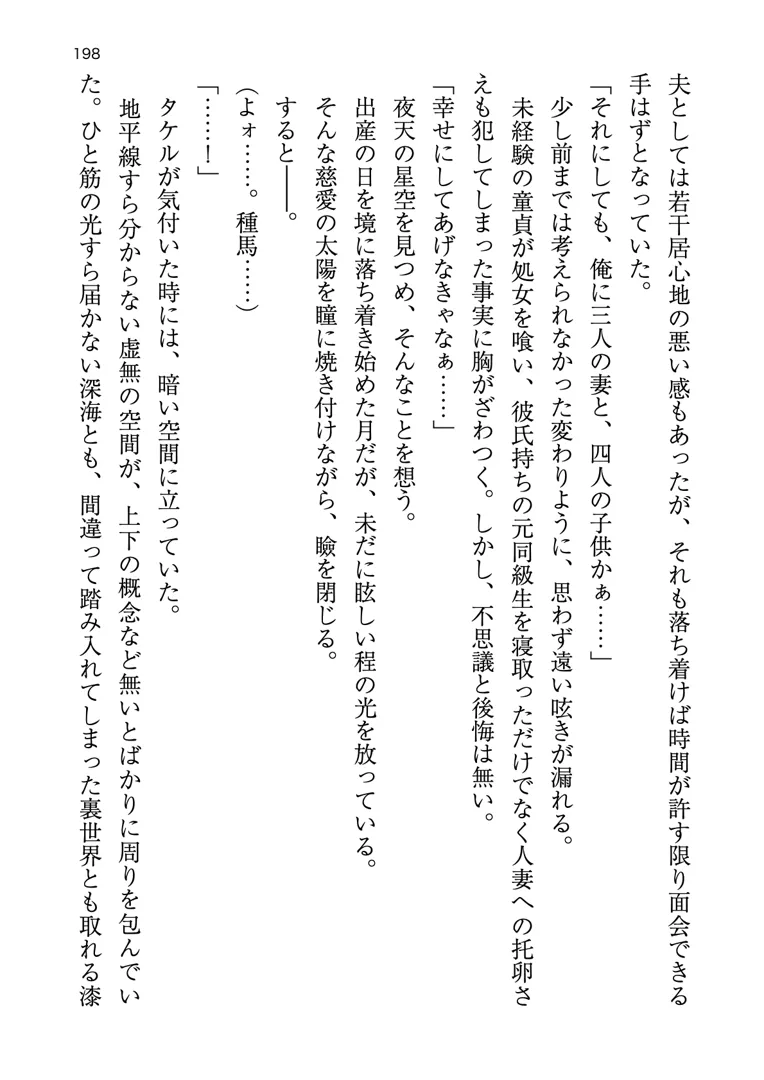 198
夫としては若干居心地の悪い感もあったが、それも落ち着けば時間が許す限り面会できる
手はずとなっていた。
「それにしても、俺に三人の妻と、四人の子供かぁ……」
少し前までは考えられなかった変わりように、思わず遠い呟きが漏れる。
未経験の童貞が処女を喰い、彼氏持ちの元同級生を寝取っただけでなく人妻への托卵さ
えも犯してしまった事実に胸がざわつく。しかし、不思議と後悔は無い。
「幸せにしてあげなきゃなぁ……」
夜天の星空を見つめ、そんなことを想う。
出産の日を境に落ち着き始めた月だが、未だに眩しい程の光を放っている。
そんな慈愛の太陽を瞳に焼き付けながら、瞼を閉じる。
すると――。
（よォ……。種馬……）
「……！」
タケルが気付いた時には、暗い空間に立っていた。
地平線すら分からない虚無の空間が、上下の概念など無いとばかりに周りを包んでい
た。ひと筋の光すら届かない深海とも、間違って踏み入れてしまった裏世界とも取れる漆